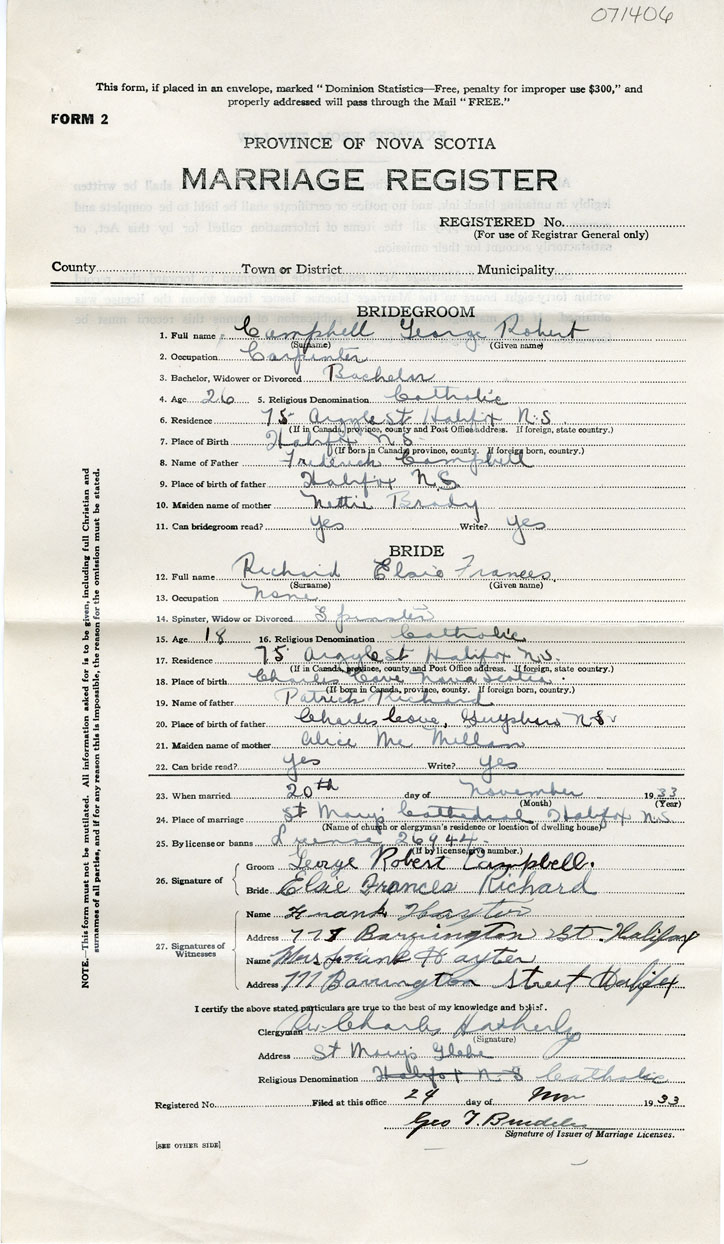 071406
This form, if placed in an envelope, marked "Dominion Statistics—Free, penalty for improper use $300," and
properly addressed will pass through the Mail "FREE."
FORM 2
PROVINCE OF NOVA SCOTIA
MARRIAGE REGISTER
REGISTERED No.
(For use of Registrar General only)
County Town or District Municipality
BRIDEGROOM
1. Full name Campbell George Robert
(Surname) (Given name)
2. Occupation Carpinter
3. Bachelor, Widower or Divorced Bachelor
4. Age 26 5. Religious Denomination Catholic
6. Residence 75 Argyle St Halifax N.S.
(If in Canada, province, county and Post Office address. If foreign, state country.)
7. Place of Birth Halifax N.S.
(If born in Canada, province, county. If foreign born, country.)
8. Name of Father Frederick Campbell
9. Place of birth of father Halifax N.S.
10. Maiden name of mother Nettie Brady
11. Can bridegroom read? yes Write? yes
BRIDE
12. Full name Richard Elsie Frances
(Surname) (Given name)
13. Occupation none
14. Spinster, Widow or Divorced Spinster
15. Age 18 16. Religious Denomination Catholic
17. Residence 75 Argyle St Halifax N.S.
(If in Canada, province, county and Post Office address. If foreign, state country.)
18. Place of birth Charles Cove Nova Scotia
(If born in Canada, province, county. If foreign born, country.)
19. Name of father Patrick Richard
20. Place of birth of father Charles Cove, Guysboro N.S.
21. Maiden name of mother Alice Mc Millan
22. Can bride read? yes Write? yes
23. When married 20th day of November 1933
(Month) (Year)
24. Place of marriage St Mary's Cathedral Halifax N.S.
(Name of church or clergyman's residence or location of dwelling house)
25. By license or banns License 26944
(If by license, give number.)
26. Signature of
Groom George Robert Campbell.
Bride Elsie Frances Richard
27. Signatures of Witnesses
Name Frank
Address 771 Barrington St. Halifax
Name Mrs Frank Hayter
Address 771 Barrington Street Halifax
I certify the above stated particulars are true to the best of my knowledge and belief.
Clergyman Charles
(Signature)
Address St Mary's Glebe
Religious Denomination Halifax N S Catholic
Registered No. Filed at this office 24 day of Nov 1933
Geo T.
Signature of Issuer of Marriage Licenses.
[SEE OTHER SIDE]
NOTE.—This form must not be mutilated. All information asked for is to be given, including full Christian and
surnames of all parties, and if for any reason this is impossible, the reason for the omission must be stated.